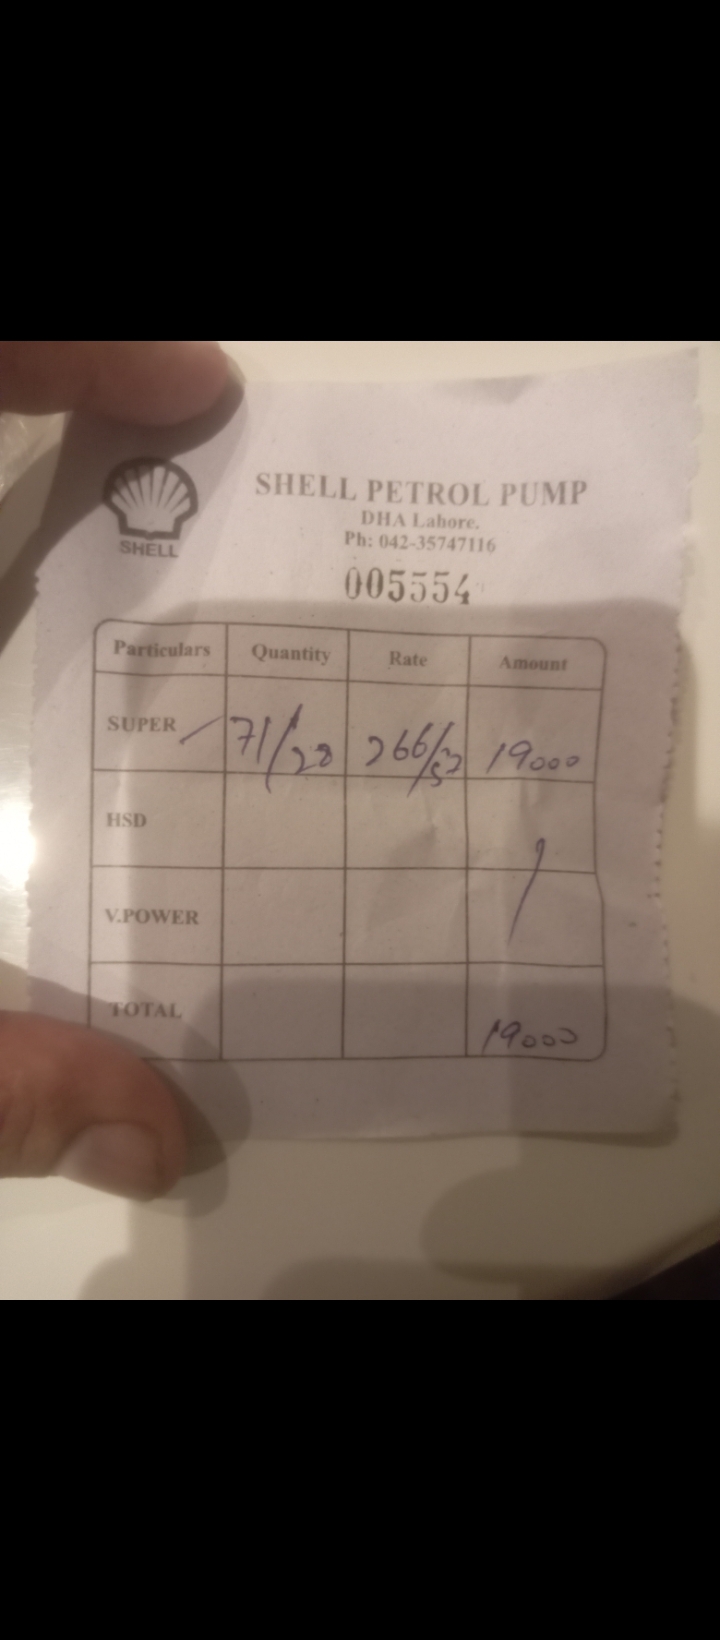 SHELL
SHELL PETROL PUMP
DHA Lahore.
Ph: 042-35747116
005554
Particulars Quantity Rate Amount
SUPER 71/28 266/52 19000
HSD
V.POWER
TOTAL 19000